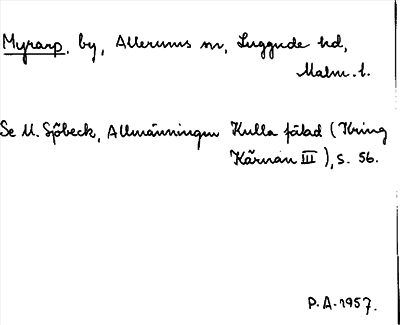 Myrarp, by, Allerums sn, Luggude hd,
Malm. l.
Se M. Sjöbeck, Allmänningen Kulla fälad (Kring
Kärnan III), s. 56.
P.A. 1957.